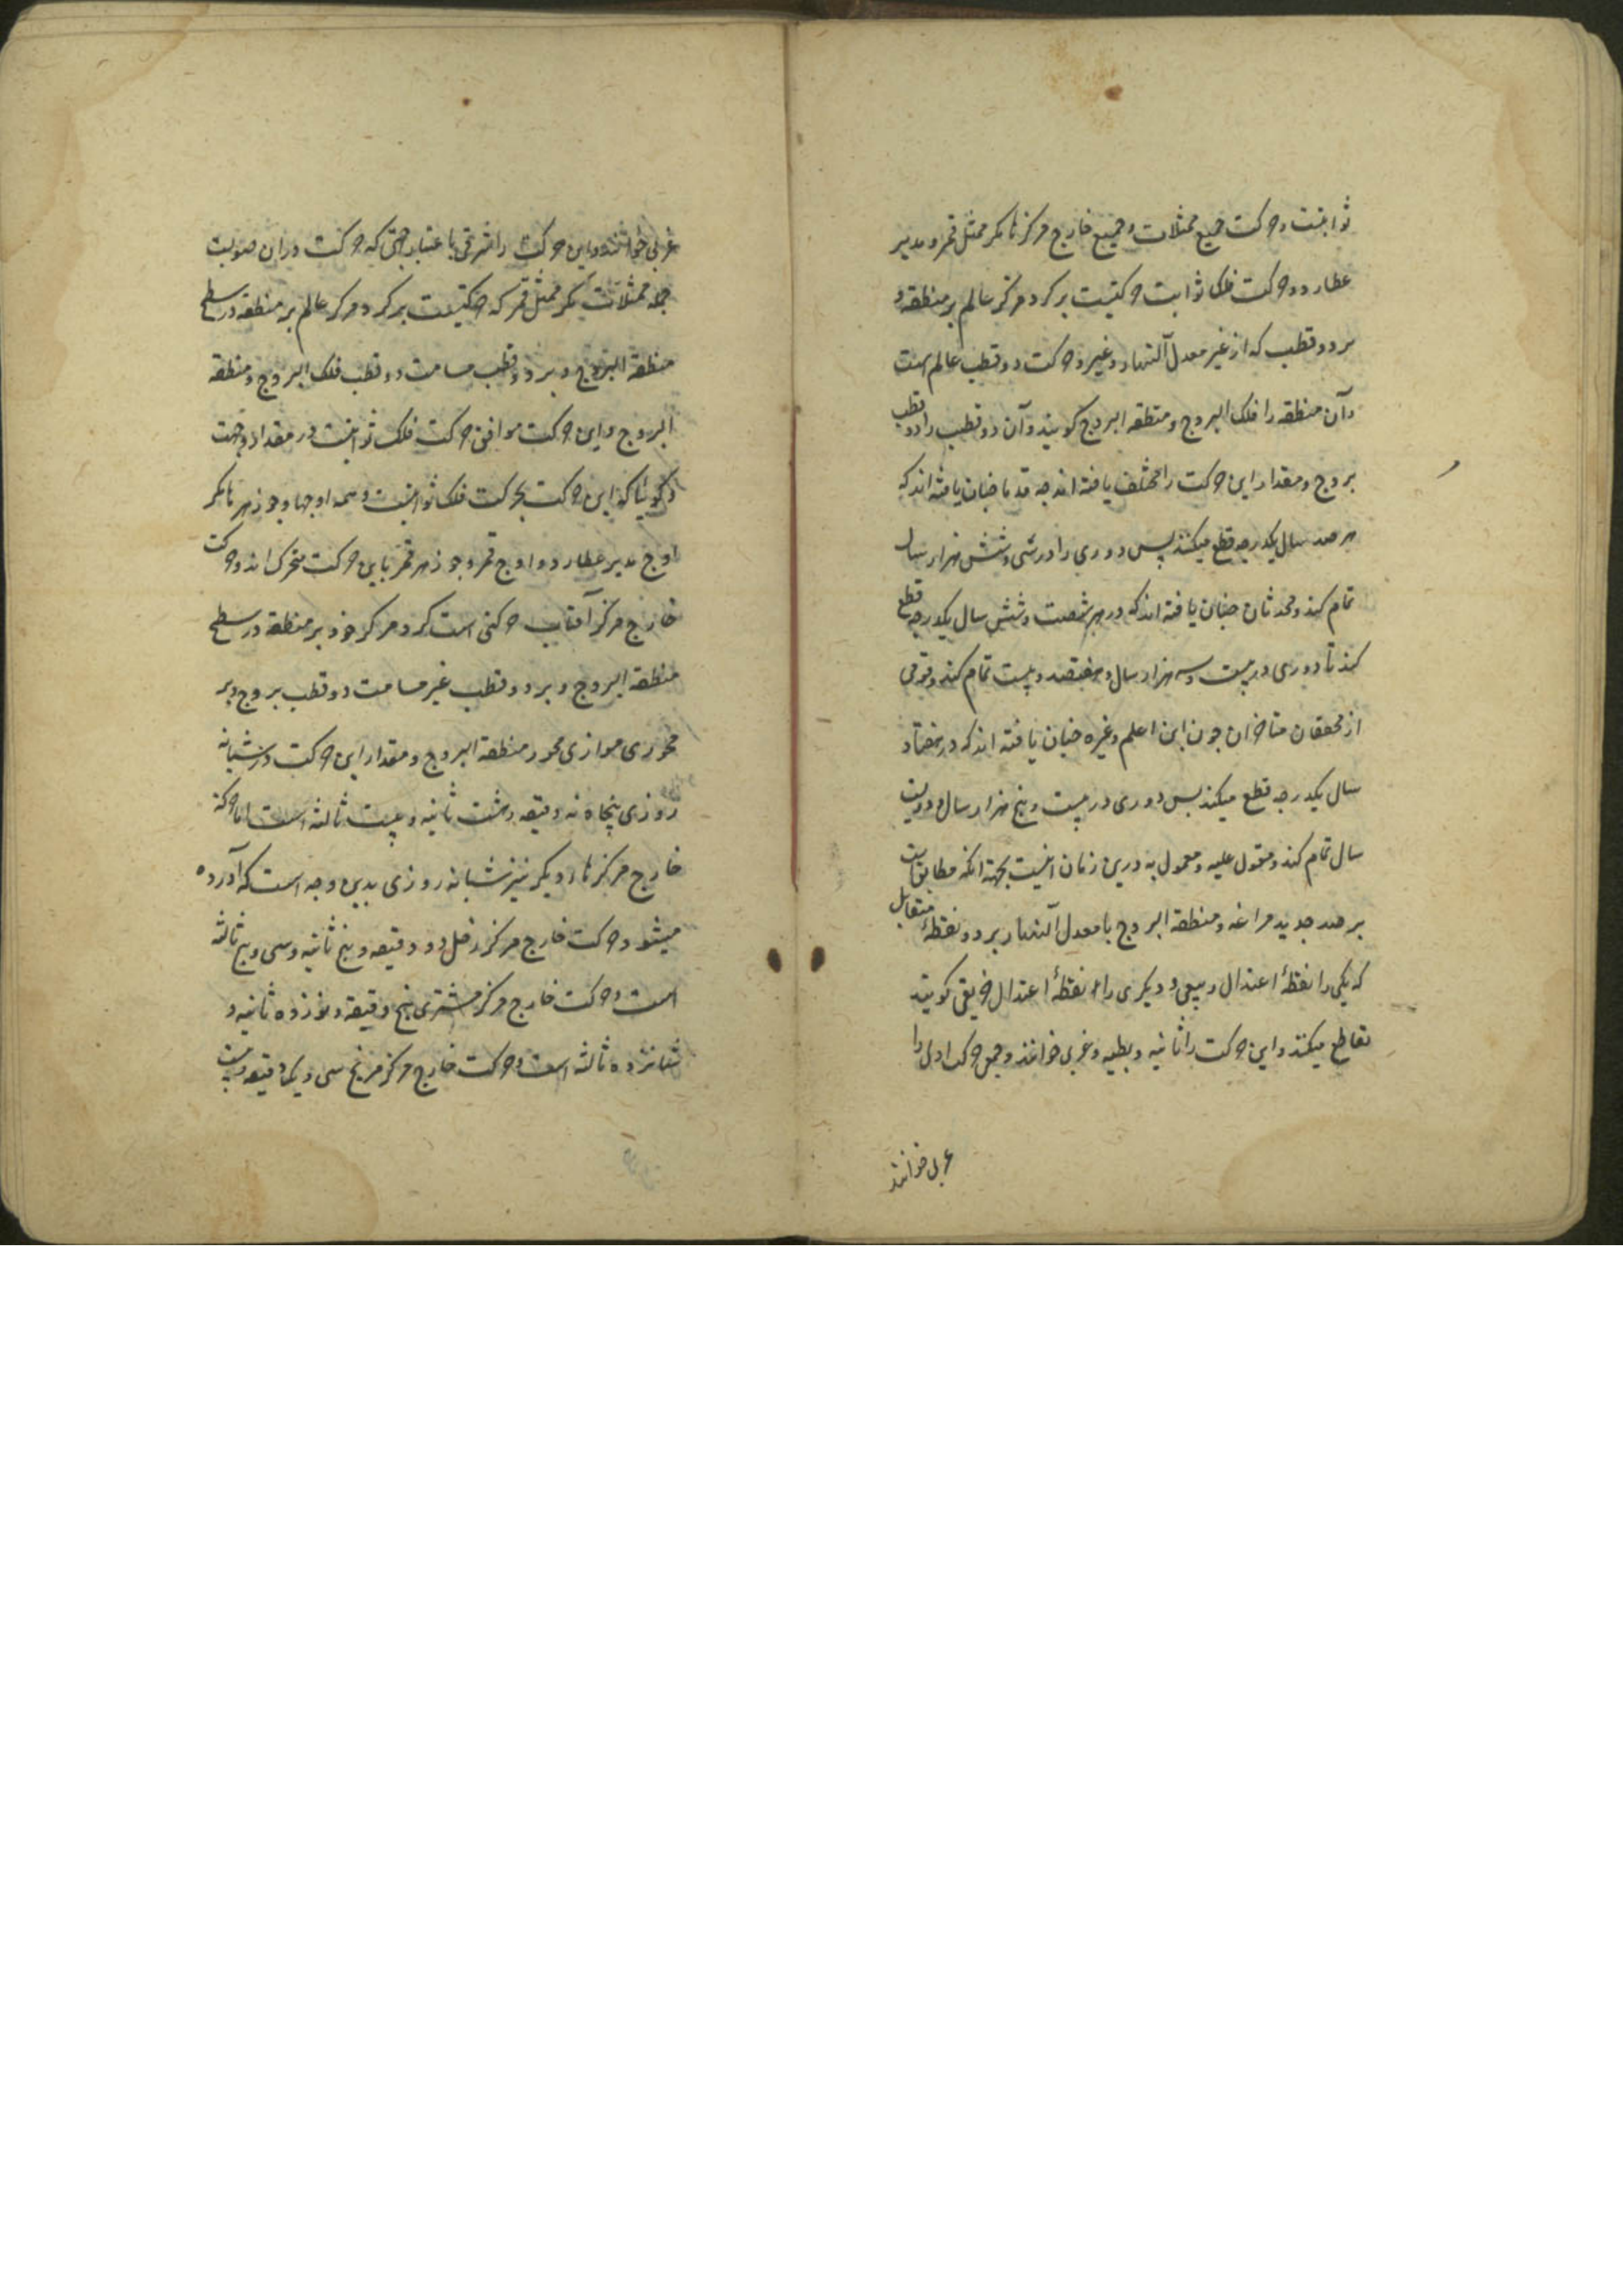 ثوابتست و حرکت جمیع ممثلات و جمیع خارج مرکزها مکر ممثل قمر و مدیر
عطارد و حرکت فلک ثوابت حرکتیست بر کرد مرکز عالم بر منطقه و
بر دو قطب که از غیر معدل النهار و غیر و حرکت دو قطب عالم است
و آن منطقه را فلک البروج و منطقه البروج کویند و آن دو قطب را دو قطب
بروج و مقدار این حرکت را مختلف یافته اند جه قدما جنان یافته اند که
بر صد سال یکدرجه قطع میکند پس دوری را در سی و شش هزار سال
تمام کند و محدثان جنان یافته اند که در هر شصت و شش سال یکدرجه قطع
کند تا دوری در بیست و سه هزار سال و هفتصد و بیست تمام کند و قومی
از محققان متاخران جون ابن اعلم و غیره جنان یافته اند که در هفتاد
سال یکدرجه قطع میکند پس دوری در بیست و پنج هزار سال و دویست
سال تمام کند و معول علیه و معمول به درین زمان اینست بجهة آنکه مطابق است
بر صد جدید مراغه و منطقة البروج با معدل النهار بر دو نقطهٔ متقابل
که یکی را نقطهٔ اعتدال ربیعی و دیکری را نقطهٔ اعتدال خریفی کویند
تقاطع میکند و این حرکت را ثانیه و بطیه و غربی خوانند و جمعی حرکت اولی را
غربی خوانند
غربی خوانند و این حرکت را شرقی باعتبار جهتی که حرکت در ان صوبست
جمله ممثلات مکر ممثل قمر که حرکتیست بر کرد مرکز عالم بر منطقه در سطح
منطقه البروج و بر دو قطب مسامت دو قطب فلک البروج و منطقه
البروج و این حرکت موافق حرکت فلک ثوابتست در مقدار و جهت
و کوئیا که این حرکت بحرکت فلک ثوابتست و همه اوجها و جوزهرها مکر
اوج مدیر عطارد و اوج قمر و جوزهر قمر باین حرکت متحرک اند و حرکت
خارج مرکز آفتاب حرکتی است کرد مرکز خود بر منطقه در سطح
منطقه البروج و بر دو قطب غیر مسامت دو قطب بروج و بر
محوری موازی محور منطقة البروج و مقدار این حرکت در شبانه
روزی پنجاه نه دقیقه و هشت ثانیه و بیست ثالثه است اما حرکة
خارج مرکزها دیکر نیز شبانه روزی بدین وجه است که آورده
میشود حرکت خارج مرکز زحل دو دقیقه و پنج ثانیه و سی و پنج ثالثه
است و حرکت خارج مرکز مشتری پنج دقیقه و نوزده ثانیه و
شانزده ثالثه است و حرکت خارج مرکز مریخ سی و یک دقیقه و بیست